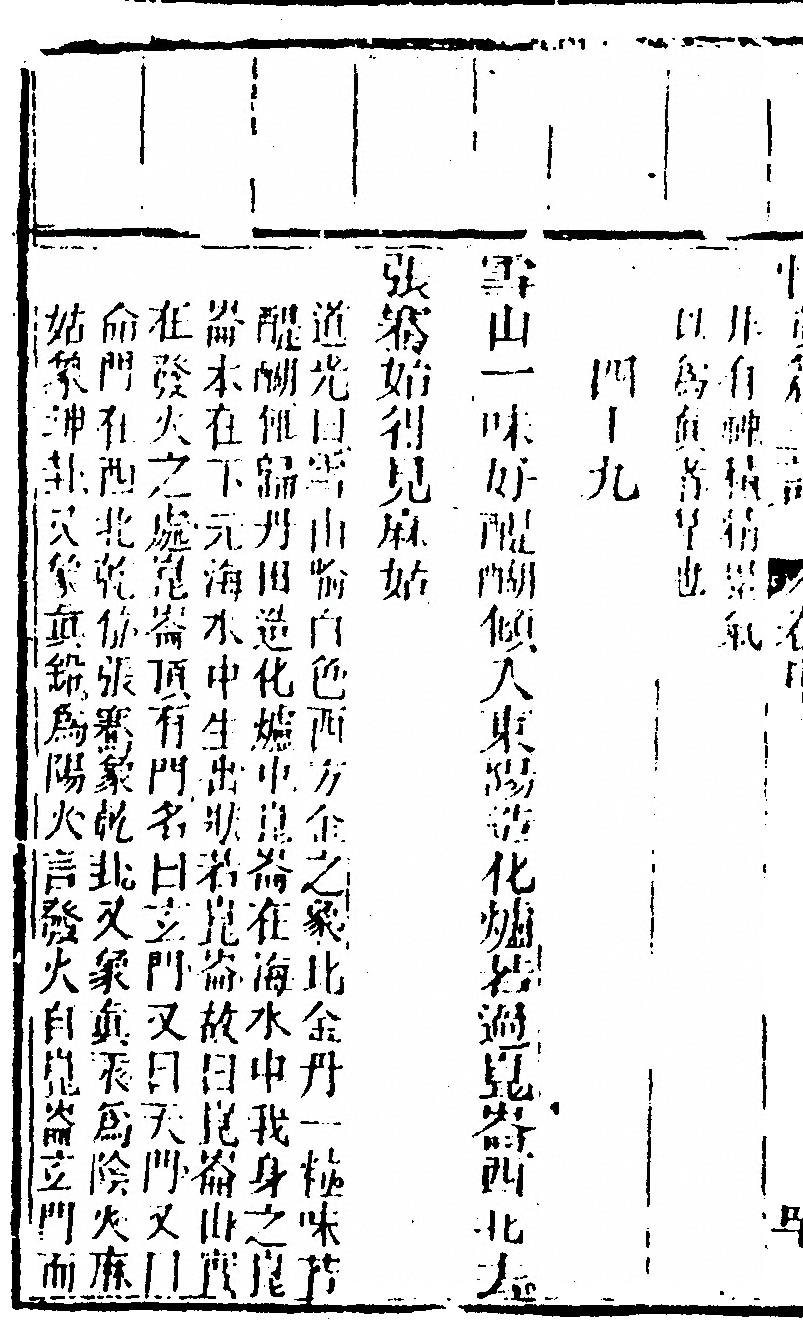 非有神積精累氣
以爲眞者畢也
四十九
雪山一味好醍醐傾入東陽造化爐若過崑崙西北去
張騫始得見麻姑
道光曰雪山喻白色西方金之象比金丹一粒味若
醍醐傾歸丹田造化爐中崑崙在海水中我身之崑
崙本在下元海水中生出狀若崑崙故曰崑崙山實
在發火之處崑崙頂有門名曰玄門又曰天門又曰
命門在西北乾位張騫象乾卦又象眞汞爲陰火麻
姑象坤卦又象眞鉛爲陽火言發火自崑崙玄門而